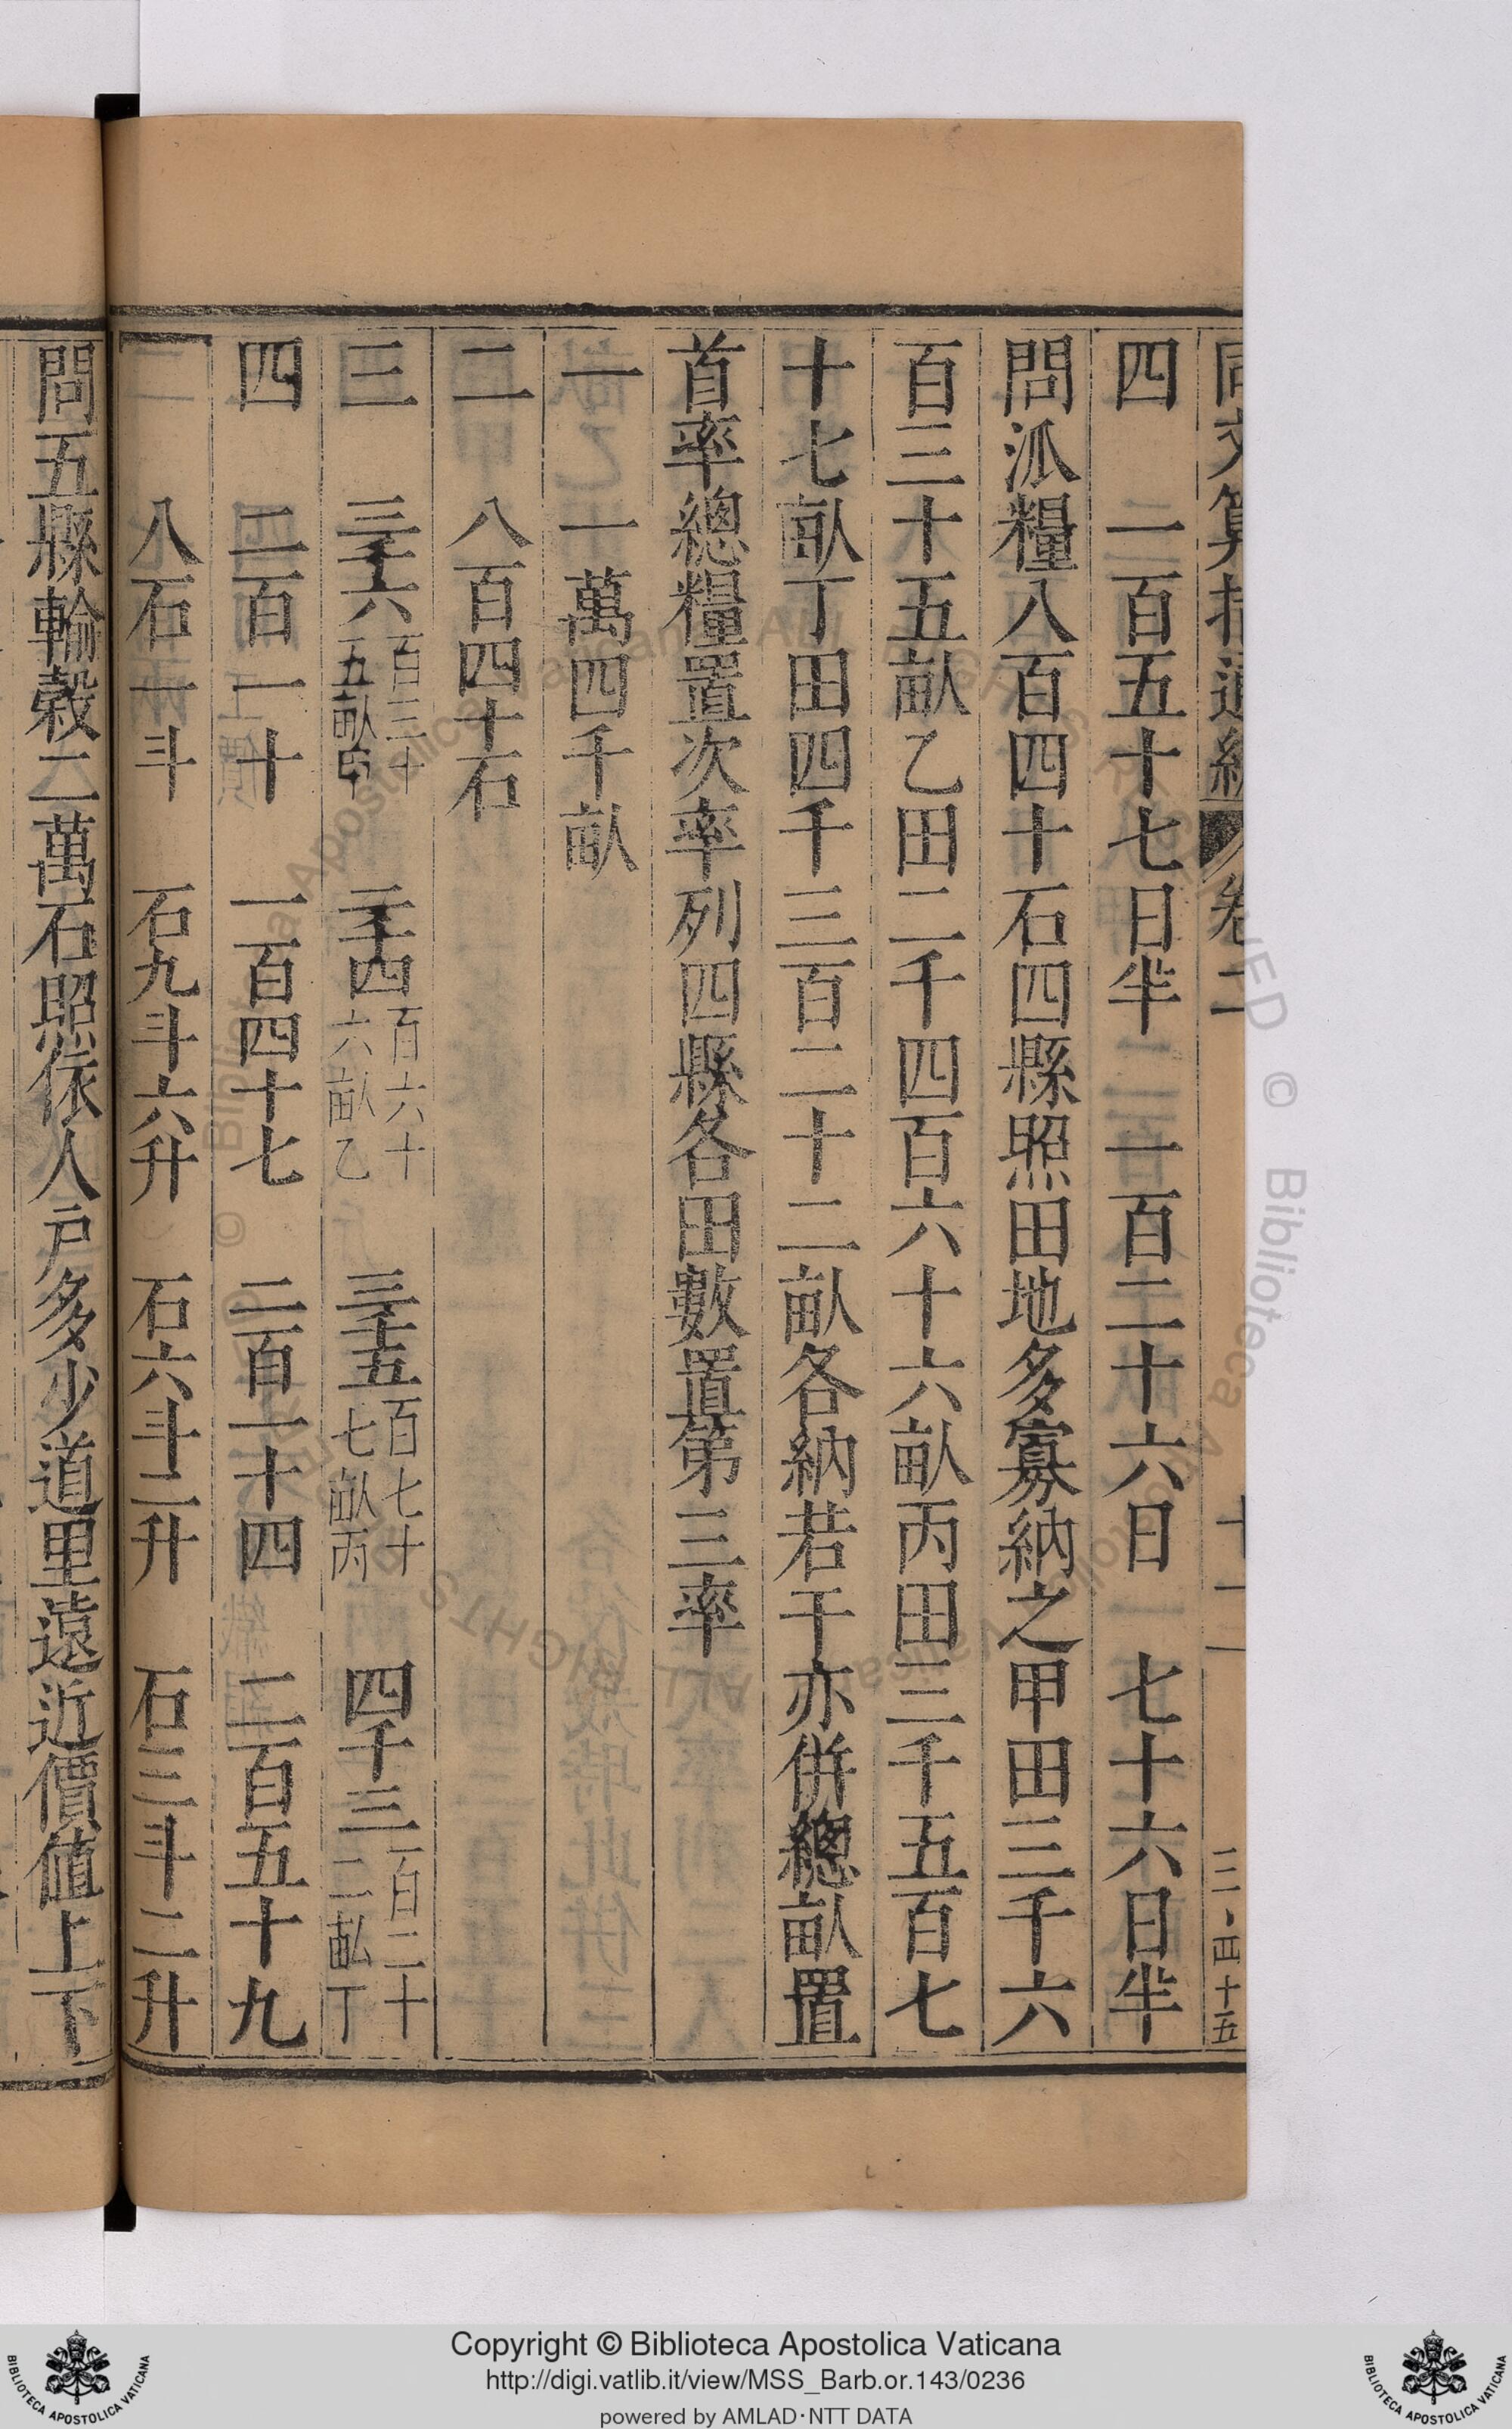 同文算指通編 卷二 十二 三、四十五
四 一百五十七日半 一百二十六日 七十六日半
問派糧八百四十石四縣照田地多寡納之甲田三千六
百三十五畝乙田二千四百六十六畝丙田三千五百七
十七畝丁田四千三百二十二畝各納若干亦併總畝置
首率總糧置次率列四縣各田數置第三率
一 一萬四千畝
二 八百四十石
三 三千六百三十五畝甲 二千四百六十六畝乙 三千五百七十七畝丙 四千三百二十二畝丁
四 二百一十 一百四十七 二百一十四 二百五十九
八石一斗 石九斗六升 石六斗二升 石三斗二升
問五縣輸穀二萬石照依人戶多少道里遠近價值上下
Copyright © Biblioteca Apostolica Vaticana
http://digi.vatlib.it/view/MSS_Barb.or.143/0236
powered by AMLAD·NTT DATA
BIBLIOTECA APOSTOLICA VATICANA
BIBLIOTECA APOSTOLICA VATICANA